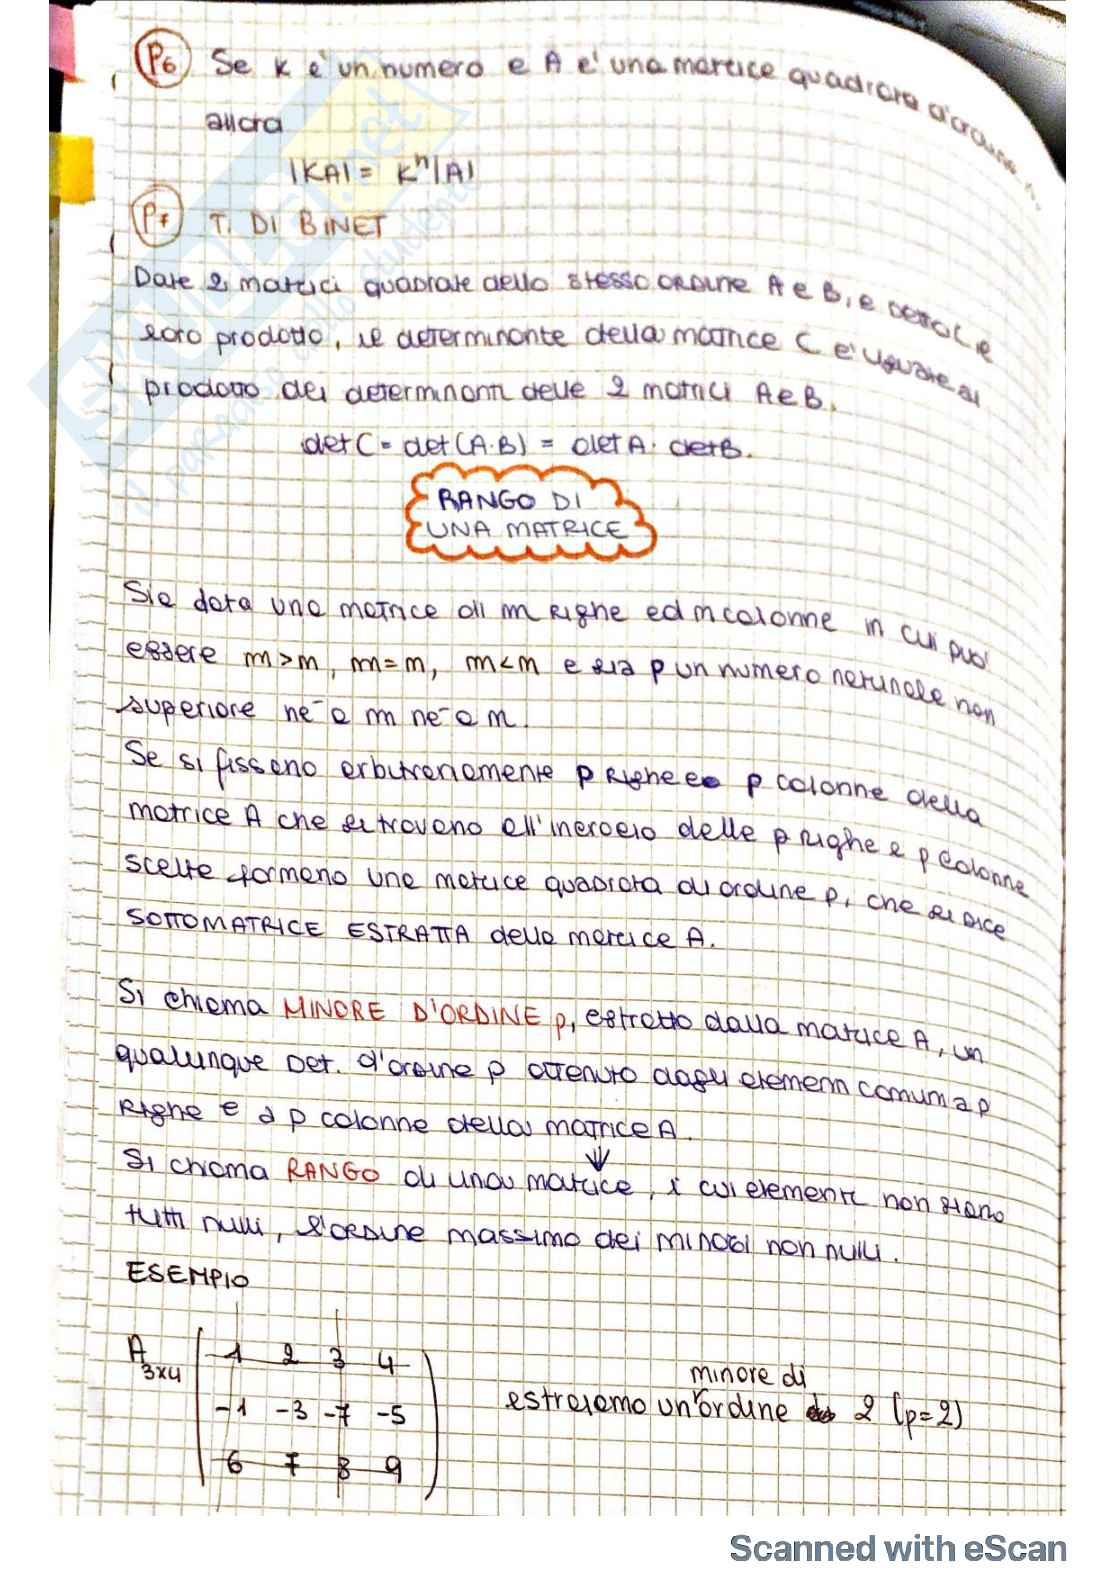 P6 Se K è un numero e A è una matrice quadrata d'ordine n.
allora
|KA| = Kⁿ|A|
P7 T. DI BINET
Date 2 matrici quadrate dello stesso ORDINE A e B, e detto C il
loro prodotto, il determinante della matrice C e' uguale al
prodotto dei determinanti delle 2 matrici A e B.
det C = det (A·B) = det A · det B.
RANGO DI
UNA MATRICE
Sia data una matrice di m Righe ed n colonne in cui puo'
essere m>n, m=n, m<n e sia p un numero naturale non
superiore ne' a m ne' a n.
Se si fissano arbitrariamente p Righe e p colonne della
matrice A che si trovano all'incrocio delle p Righe e p colonne
scelte formano una matrice quadrata di ordine p, che si dice
SOTTOMATRICE ESTRATTA della matrice A.
Si chiama MINORE D'ORDINE p, estratto dalla matrice A, un
qualunque Det. d'ordine p ottenuto dagli elementi comuni a p
Righe e a p colonne della MATRICE A.
Si chiama RANGO di una matrice, i cui elementi non siano
tutti nulli, l'ORDINE massimo dei minori non nulli.
ESEMPIO
A 3x4
1 2 3 4
-1 -3 -7 -5
6 7 8 9
minore di
estraiamo un'ordine 2 (p=2)
Scanned with eScan